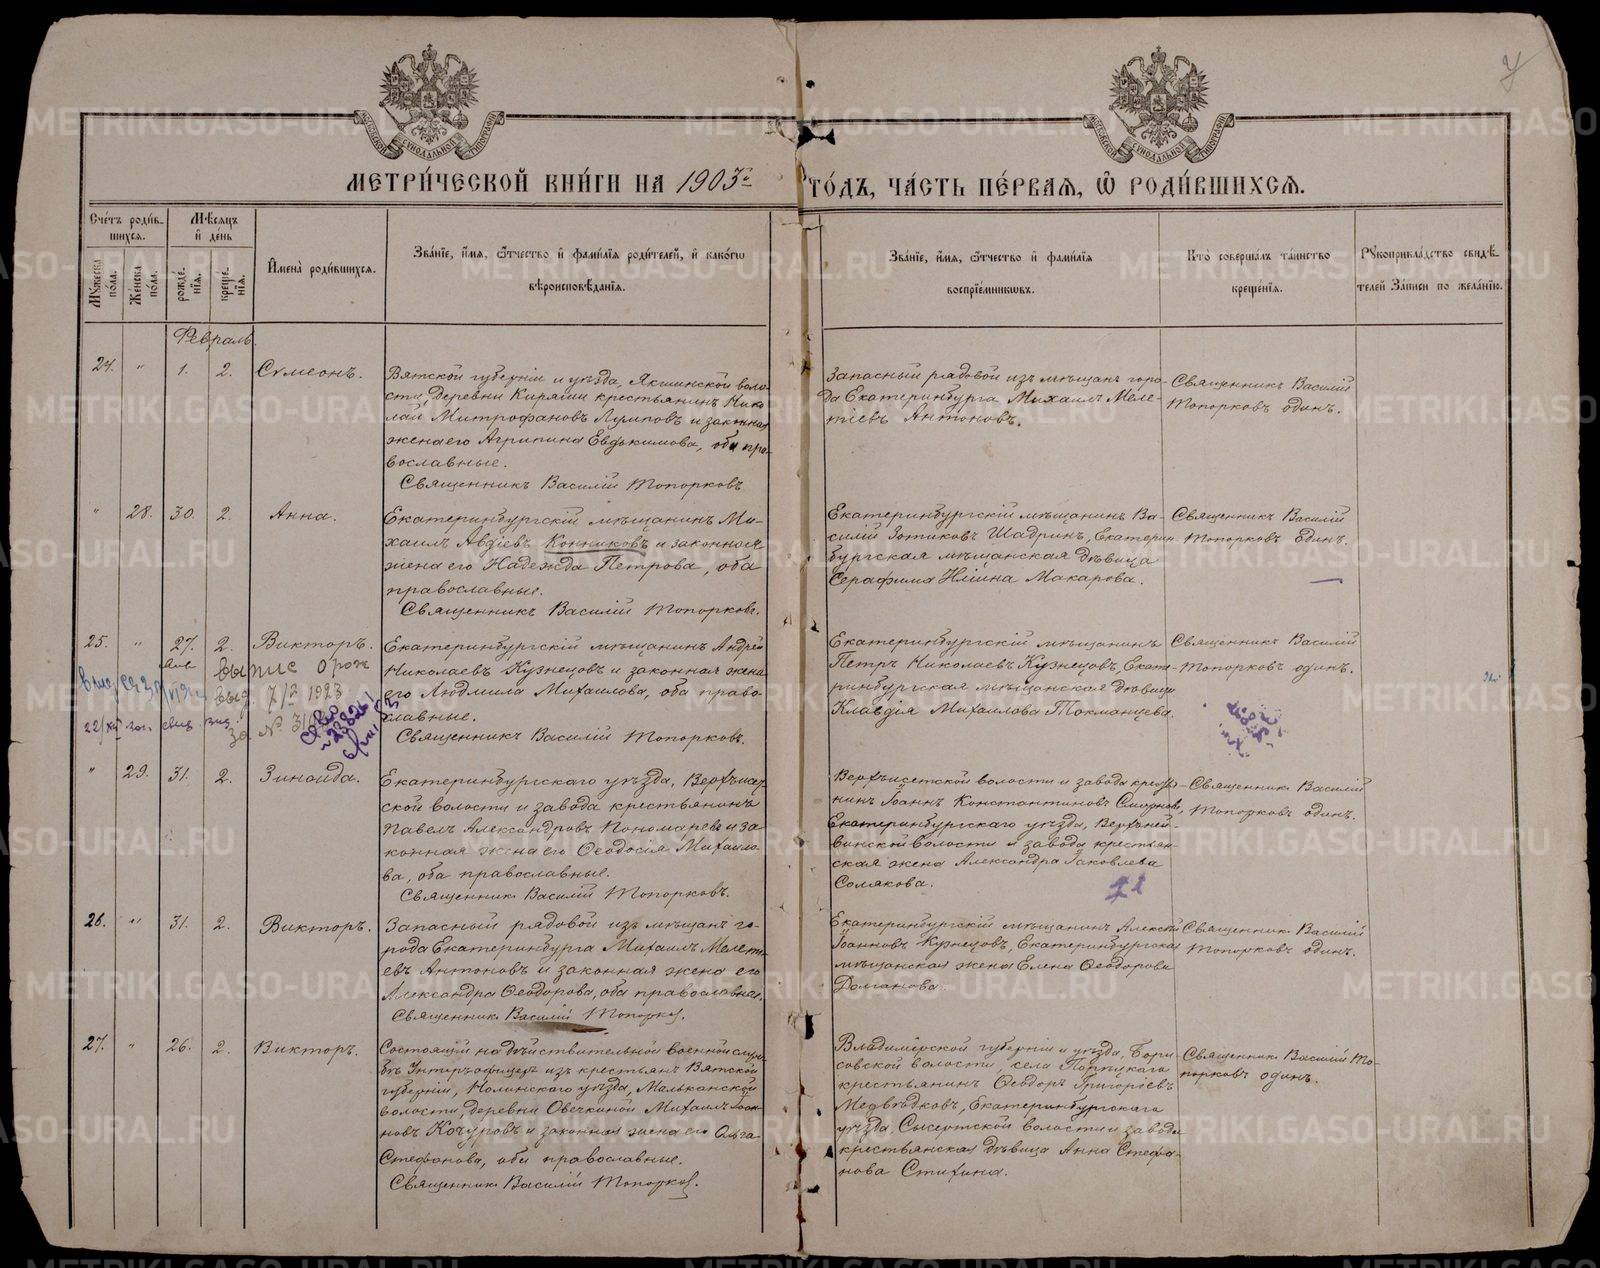 МЕТРИ́ЧЕСКОЙ КНИ́ГИ НА 1903й ГО́ДЪ, ЧА́СТЬ ПЕ́РВАЯ, Ѿ РОДИ́ВШИХСЯ.
Сче́тъ роди́в-
шихся.
Мѣсяцъ
и́ де́нь
Му́жеска по́ла.
Же́нска по́ла.
рожде́нїя.
креще́нїя.
И҆мена̀ роди́вшихся.
Зва́нїе, и҆́мя, ѻ҆́тчество и҆ фами́лїя роди́телей, и҆ како́гѡ
вѣроисповѣ́данїя.
Зва́нїе, и҆́мя, ѻ҆́тчество и҆ фами́лїя
воспрїе́мникѡвъ.
Кто̀ соверша́лъ та́инство
креще́нїя.
Рꙋкоприкла́дство свидѣ́-
телей за́писи по жела́нїю.
Февраль.
24. " 1. 2. Сѵмеонъ.
Вятской губерніи и уѣзда, Якшинской воло-
сти, деревни Киряши крестьянинъ Нико-
лай Митрофановъ Лумповъ и законная
жена его Агрипина Евдокимова, оба пра-
вославные.
Священникъ Василій Топорковъ
Запасный рядовой изъ мѣщанъ горо-
да Екатеринбурга Михаилъ Меле-
тіевъ Антоновъ.
Священникъ Василій
Топорковъ одинъ.
" 28. 30. 2. Анна.
Екатеринбургскій мѣщанинъ Ми-
хаилъ Авдіевъ Конниковъ и законная
жена его Надежда Петрова, оба
православные.
Священникъ Василій Топорковъ.
Екатеринбургскій мѣщанинъ Ва-
силій Зотиковъ Шадринъ, Екатерин-
бургская мѣщанская дѣвица
Серафима Ильина Макарова.
Священникъ Василій
Топорковъ единъ.
25. " 27. 2. Викторъ.
янв
выпис о рож
выд 7/2 1923
за №
Екатеринбургскій мѣщанинъ Андрей
Николаевъ Кузнецовъ и законная жена
его Людмила Михаилова, оба право-
славные.
Священникъ Василій Топорковъ.
Екатеринбургскій мѣщанинъ
Петръ Николаевъ Кузнецовъ, Екате-
ринбургская мѣщанская дѣвица
Клавдія Михаилова Токманцева.
Священникъ Василій
Топорковъ одинъ.
" 29. 31. 2. Зинаида.
Екатеринбургскаго уѣзда, Верхъисет-
ской волости и завода крестьянинъ
Павелъ Александровъ Пономаревъ и за-
конная жена его Ѳеодосія Михаило-
ва, оба православные.
Священникъ Василій Топорковъ.
Верхъисетской волости и завода кресть-
нинъ Іоаннъ Константиновъ Смирновъ,
Екатеринбургскаго уѣзда, Верхней-
винской волости и завода крестьян-
ская жена Александра Іаковлева
Солякова.
Священникъ Василій
Топорковъ одинъ.
26. " 31. 2. Викторъ.
Запасный рядовой изъ мѣщанъ го-
рода Екатеринбурга Михаилъ Мелеті-
евъ Антоновъ и законная жена его
Александра Ѳеодорова, оба православные.
Священникъ Василій Топорковъ.
Екатеринбургскій мѣщанинъ Алексѣй
Іоанновъ Кузнецовъ, Екатеринбургская
мѣщанская жена Елена Ѳеодорова
Доманова.
Священникъ Василій
Топорковъ одинъ.
27. " 26. 2. Викторъ.
Состоящій на дѣйствительной военной служ-
бѣ Унтеръ-офицеръ изъ крестьянъ Вятской
губерніи, Нолинскаго уѣзда, Мальканской
волости, деревни Овечкиной Михаилъ Іоан-
новъ Кочуровъ и законная жена его Ольга
Стефанова, оба православные.
Священникъ Василій Топорковъ.
Владимірской губерніи и уѣзда, Бори-
совской волости, села
крестьянинъ Ѳеодоръ Григоріевъ
Медвѣдковъ, Екатеринбургскаго
уѣзда, Сысертской волости и завода
крестьянская дѣвица Анна Стефа-
нова Стихина.
Священникъ Василій То-
порковъ одинъ.
METRIKI.GASO-URAL.RU